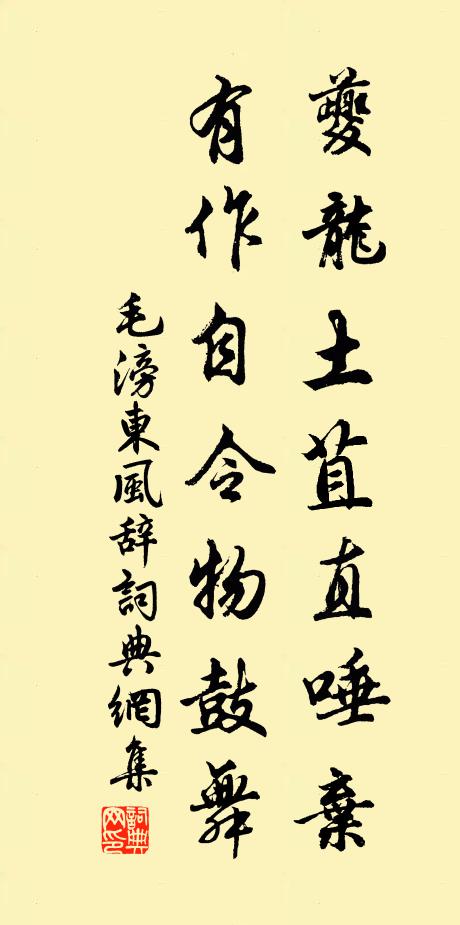 夔龍土苴直唾棄
有作自令物鼓舞
毛滂東風辞詞典網集
詞典网印